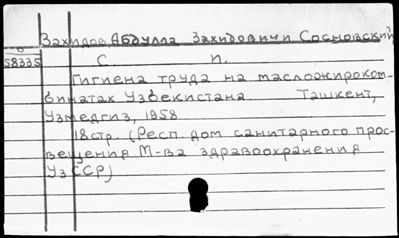 Захидов Абдулла Захидович и Сосновский
58335 С. П.
Гигиена труда на масложироком-
бинатах Узбекистана. Ташкент,
Узмедгиз, 1958
18стр. (Респ. дом санитарного прос-
вещения М-ва здравоохранения
УзССР)